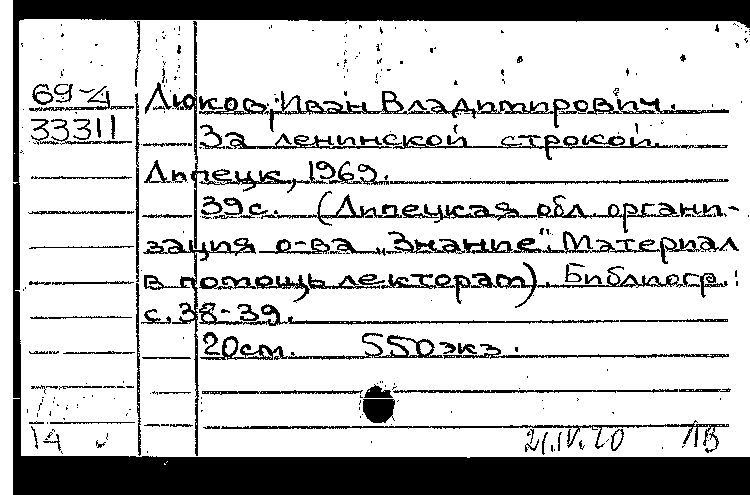 69-4 Люков, Иван Владимирович.
33311 За ленинской строкой.
Липецк, 1969.
39с. (Липецкая обл. органи-
зация о-ва „Знание". Материал
в помощь лекторам). Библиогр.:
с. 38-39.
20см. 550экз.
14 21.IV.70 ЛВ